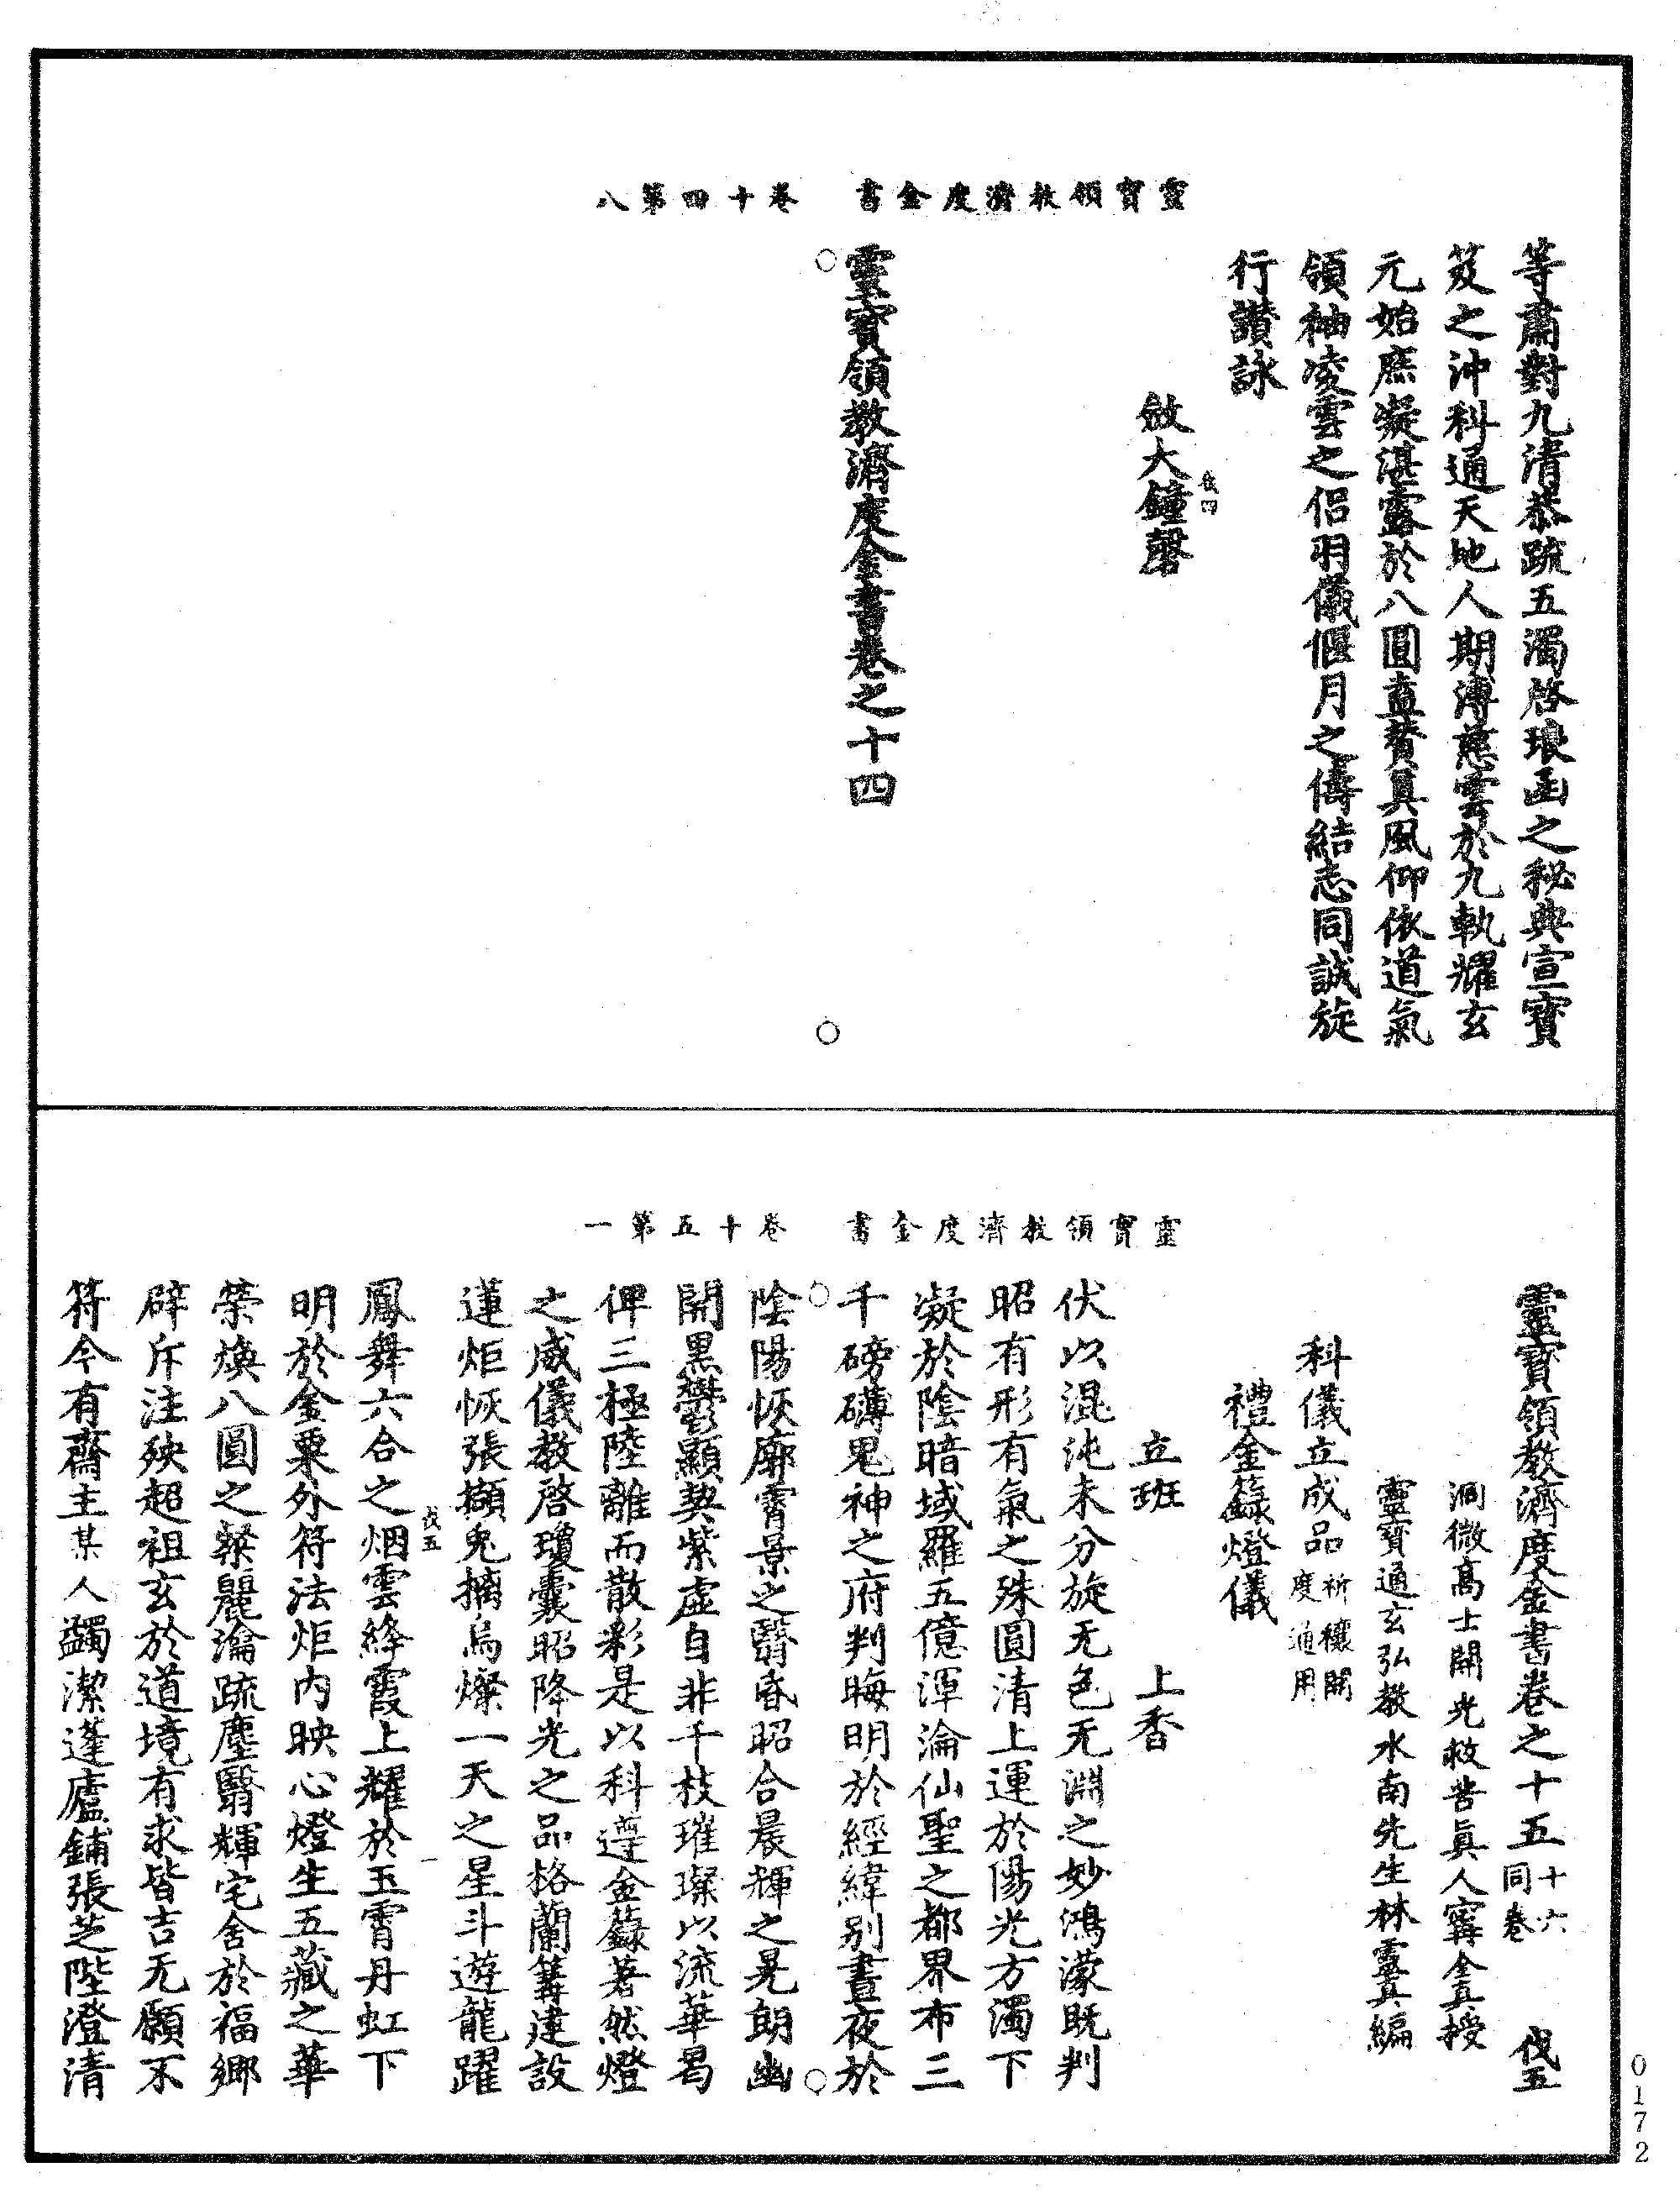 靈寶領教濟度金書　卷十四第八
等肅對九清恭䟽五濁啓琅函之秘典宣寶
笈之沖科通天地人期溥慈雲於九執耀玄
元始庶凝湛露於八圓直賛真風仰依道氣
領袖凌雲之侣羽儀偃月之儔結志同誠旋
行讃詠
伐四
敛大鐘磬
靈寶領教濟度金書卷之十四
靈寶領教濟度金書　卷十五第一
靈寶領教濟度金書卷之十五 十六同卷 伐五
洞微高士開光救苦眞人寗全真授
靈寶通玄弘教水南先生林靈真編
科儀立成品 祈禳開度通用
禮金籙燈儀
立班　上香
伏以混沌未分旋无色无淵之妙鴻濛既判
昭有形有氣之殊圓清上運於陽光方濁下
凝於陰暗域羅五億渾淪仙聖之都界布三
千磅礴鬼神之府判晦明於經緯别晝夜於
陰陽恢廓霄景之翳昏昭合晨輝之晃朗幽
開黒鬱顯契紫虚自非千枝璀璨以流華曷
俾三極陸離而散彩是以科遵金籙著然燈
之威儀教啓瓊囊昭降光之品格蘭篝建設
蓮炬恢張擷兔摛烏燦一天之星斗遊龍躍
伐五　一
鳳舞六合之烟雲絳霞上耀於玉霄丹虹下
明於金粟外符法炬内映心燈生五藏之華
榮煥八圓之粲麗瀹䟽塵翳輝宅舍於福鄉
辟斥注殃超祖玄於道境有求皆吉无願不
符今有齋主某人蠲潔蓬廬鋪張芝陛澄清
0172